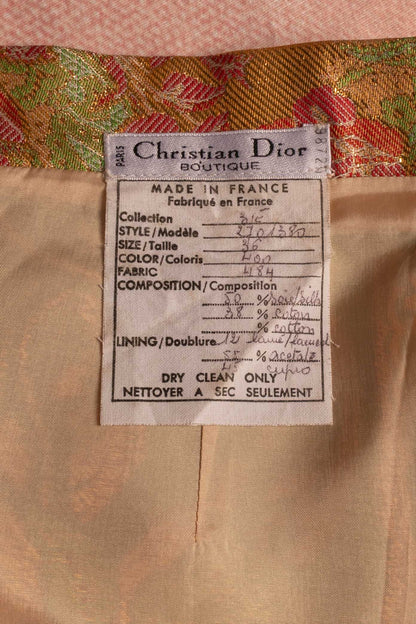 PARIS
Christian Dior
BOUTIQUE
MADE IN FRANCE
Fabriqué en France
Collection
STYLE/Modèle 2701380
SIZE/Taille 36
COLOR/Coloris 400
FABRIC 484
COMPOSITION/Composition
50 % soie/silk
38 % coton
% cotton
LINING/Doublure 12 lamé/lamed
55 % acetate
45 cupro
DRY CLEAN ONLY
NETTOYER A SEC SEULEMENT